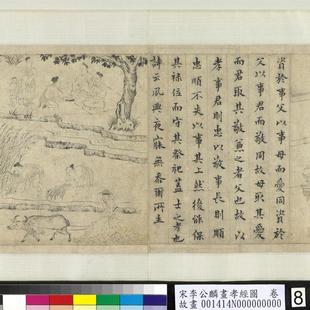 資於事父以事母而愛同資於
父以事君而敬同故母取其愛
而君取其敬兼之者父也故以
孝事君則忠以敬事長則順
忠順不失以事其上然後能保
其祿位而守其祭祀蓋士之孝也
詩云夙興夜寐無忝爾所生
宋李公麟畫孝經圖 卷
故畫 001414N000000000
8